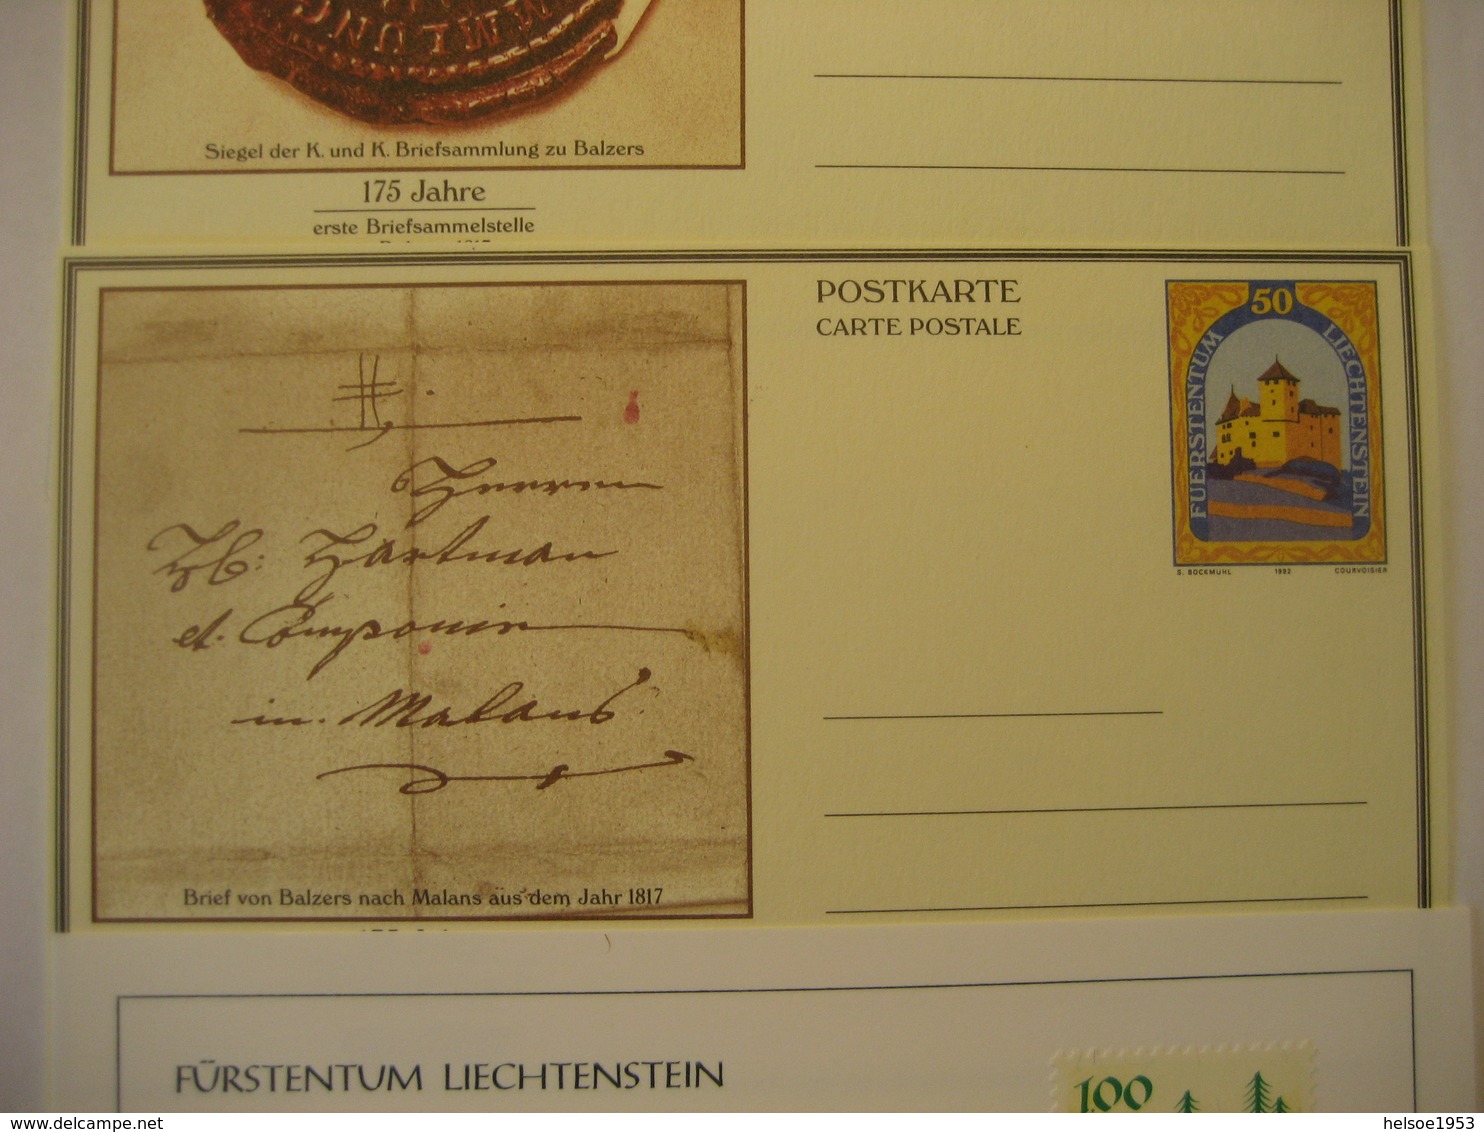 MMLUNG
Siegel der K. und K. Briefsammlung zu Balzers
175 Jahre
erste Briefsammelstelle
POSTKARTE
CARTE POSTALE
50
FUERSTENTUM LIECHTENSTEIN
S. BOCKMÜHL 1992 COURVOISIER
Herren
Hartman
et. Compagnie
in. Malans
Brief von Balzers nach Malans aus dem Jahr 1817
FÜRSTENTUM LIECHTENSTEIN
1.00
delcampe.net
helsoe1953